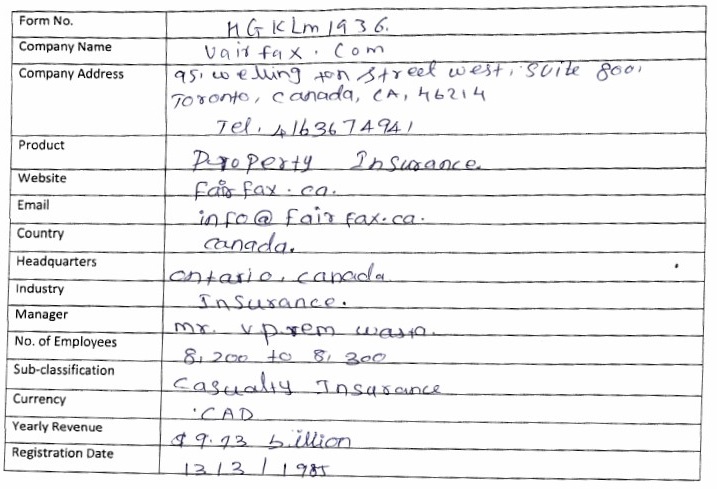 Form No. HGKLm1936.
Company Name Vairfax. Com
Company Address 95, welling ton street west, Suite 800,
Toronto, Canada, CA, 46214
Tel. 4163674941
Product Property Insurance.
Website fairfax.ca.
Email info@fairfax.ca.
Country Canada.
Headquarters Ontario, Canada
Industry Insurance.
Manager mr. v prem watsn.
No. of Employees 8,200 to 8,300
Sub-classification Casualty Insurance
Currency CAD
Yearly Revenue $9.73 billion
Registration Date 13/3/1985